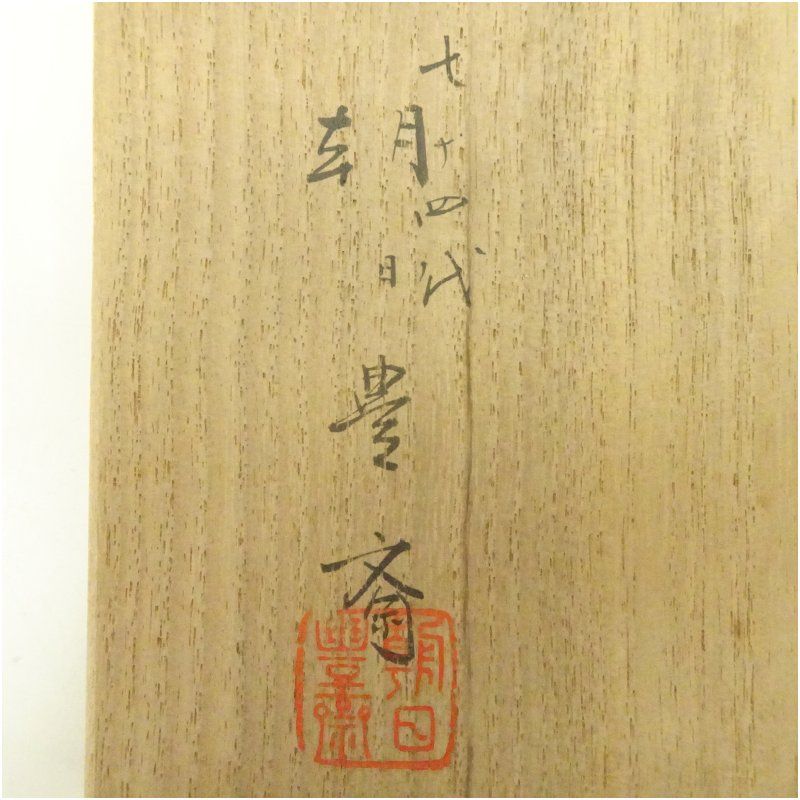 七十四代
朝日豊斎
朝日
豐齋